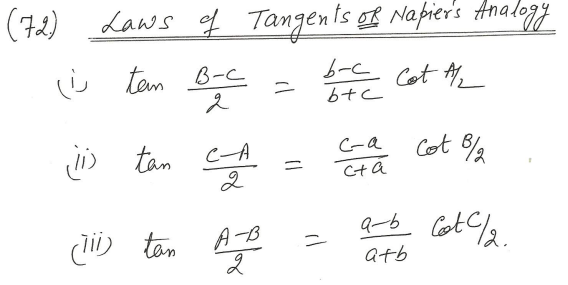 (72) Laws of Tangents OR Napier's Analogy
(i) tan B-C/2 = b-c/b+c Cot A/2
(ii) tan C-A/2 = c-a/c+a Cot B/2
(iii) tan A-B/2 = a-b/a+b Cot C/2.